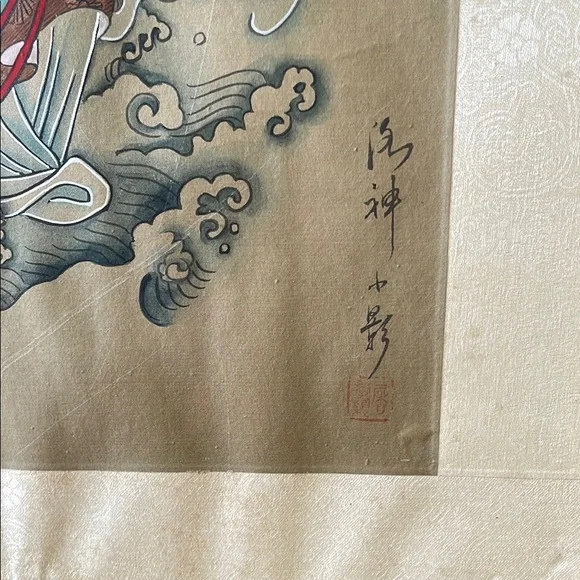 洛神小影